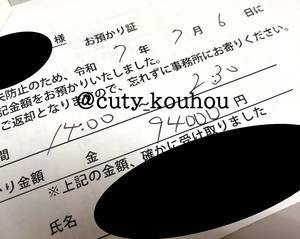 様 お預かり証
失防止のため、令和 7 年 7 月 6 日に
記金額をお預かりいたしました。
ご返却となりますので、忘れずに事務所にお寄りください。
@cuty_kouhou
間 14:00 2:30
かり金額 金 94000 円
※上記の金額、確かに受け取りました
氏名